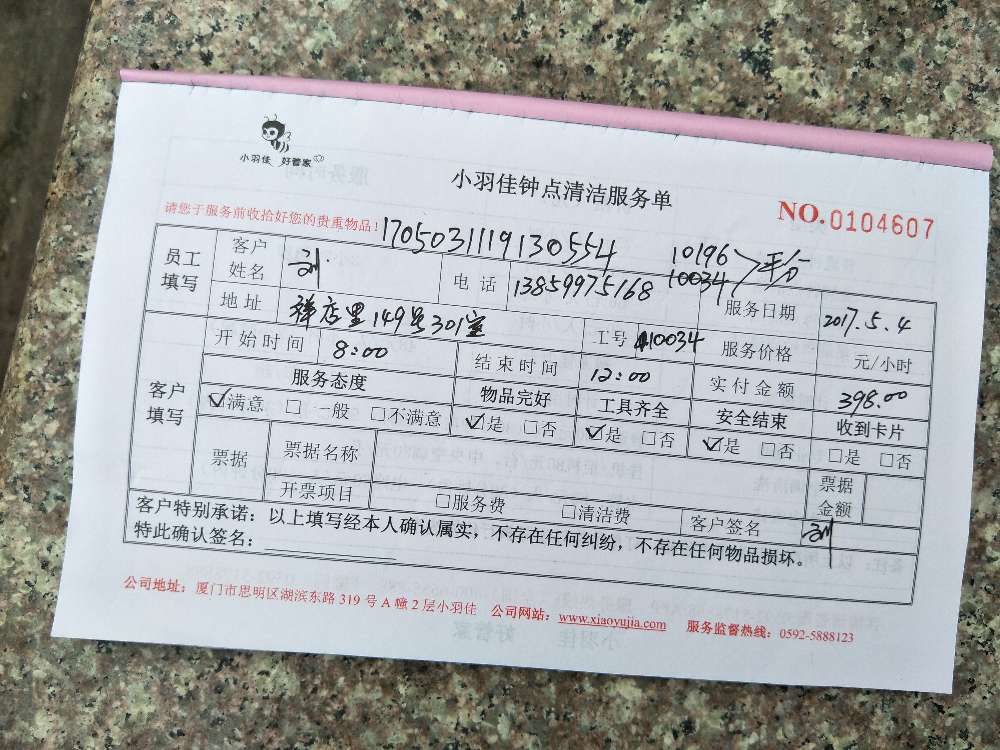 小羽佳 好管家
小羽佳钟点清洁服务单
NO.0104607
请您于服务前收拾好您的贵重物品! 1705031119130554 10196 平分
10034
员工填写 客户姓名 刘 电话 13859975168 服务日期 2017.5.4
地址 祥店里149号301室 工号 10034 服务价格 元/小时
客户填写 开始时间 8:00 结束时间 12:00 实付金额 398.00
服务态度 物品完好 工具齐全 安全结束 收到卡片
☑满意 □一般 □不满意 ☑是 □否 ☑是 □否 ☑是 □否 □是 □否
票据 票据名称 票据金额
开票项目 □服务费 □清洁费 客户签名 刘
客户特别承诺:以上填写经本人确认属实,不存在任何纠纷,不存在任何物品损坏。
特此确认签名:
公司地址:厦门市思明区湖滨东路 319 号 A 幢 2 层小羽佳 公司网站:www.xiaoyujia.com 服务监督热线:0592-5888123